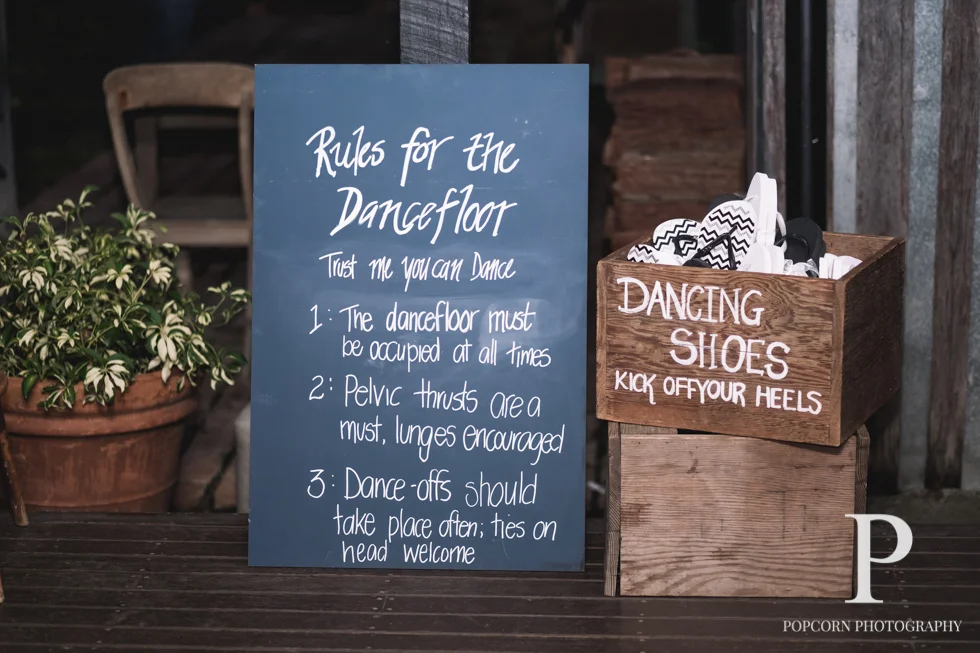 Rules for the
Dancefloor
Trust me you can Dance
1: The dancefloor must
be occupied at all times
2: Pelvic thrusts are a
must, lunges encouraged
3: Dance-offs should
take place often; ties on
head welcome
DANCING
SHOES
KICK OFF YOUR HEELS
P
POPCORN PHOTOGRAPHY